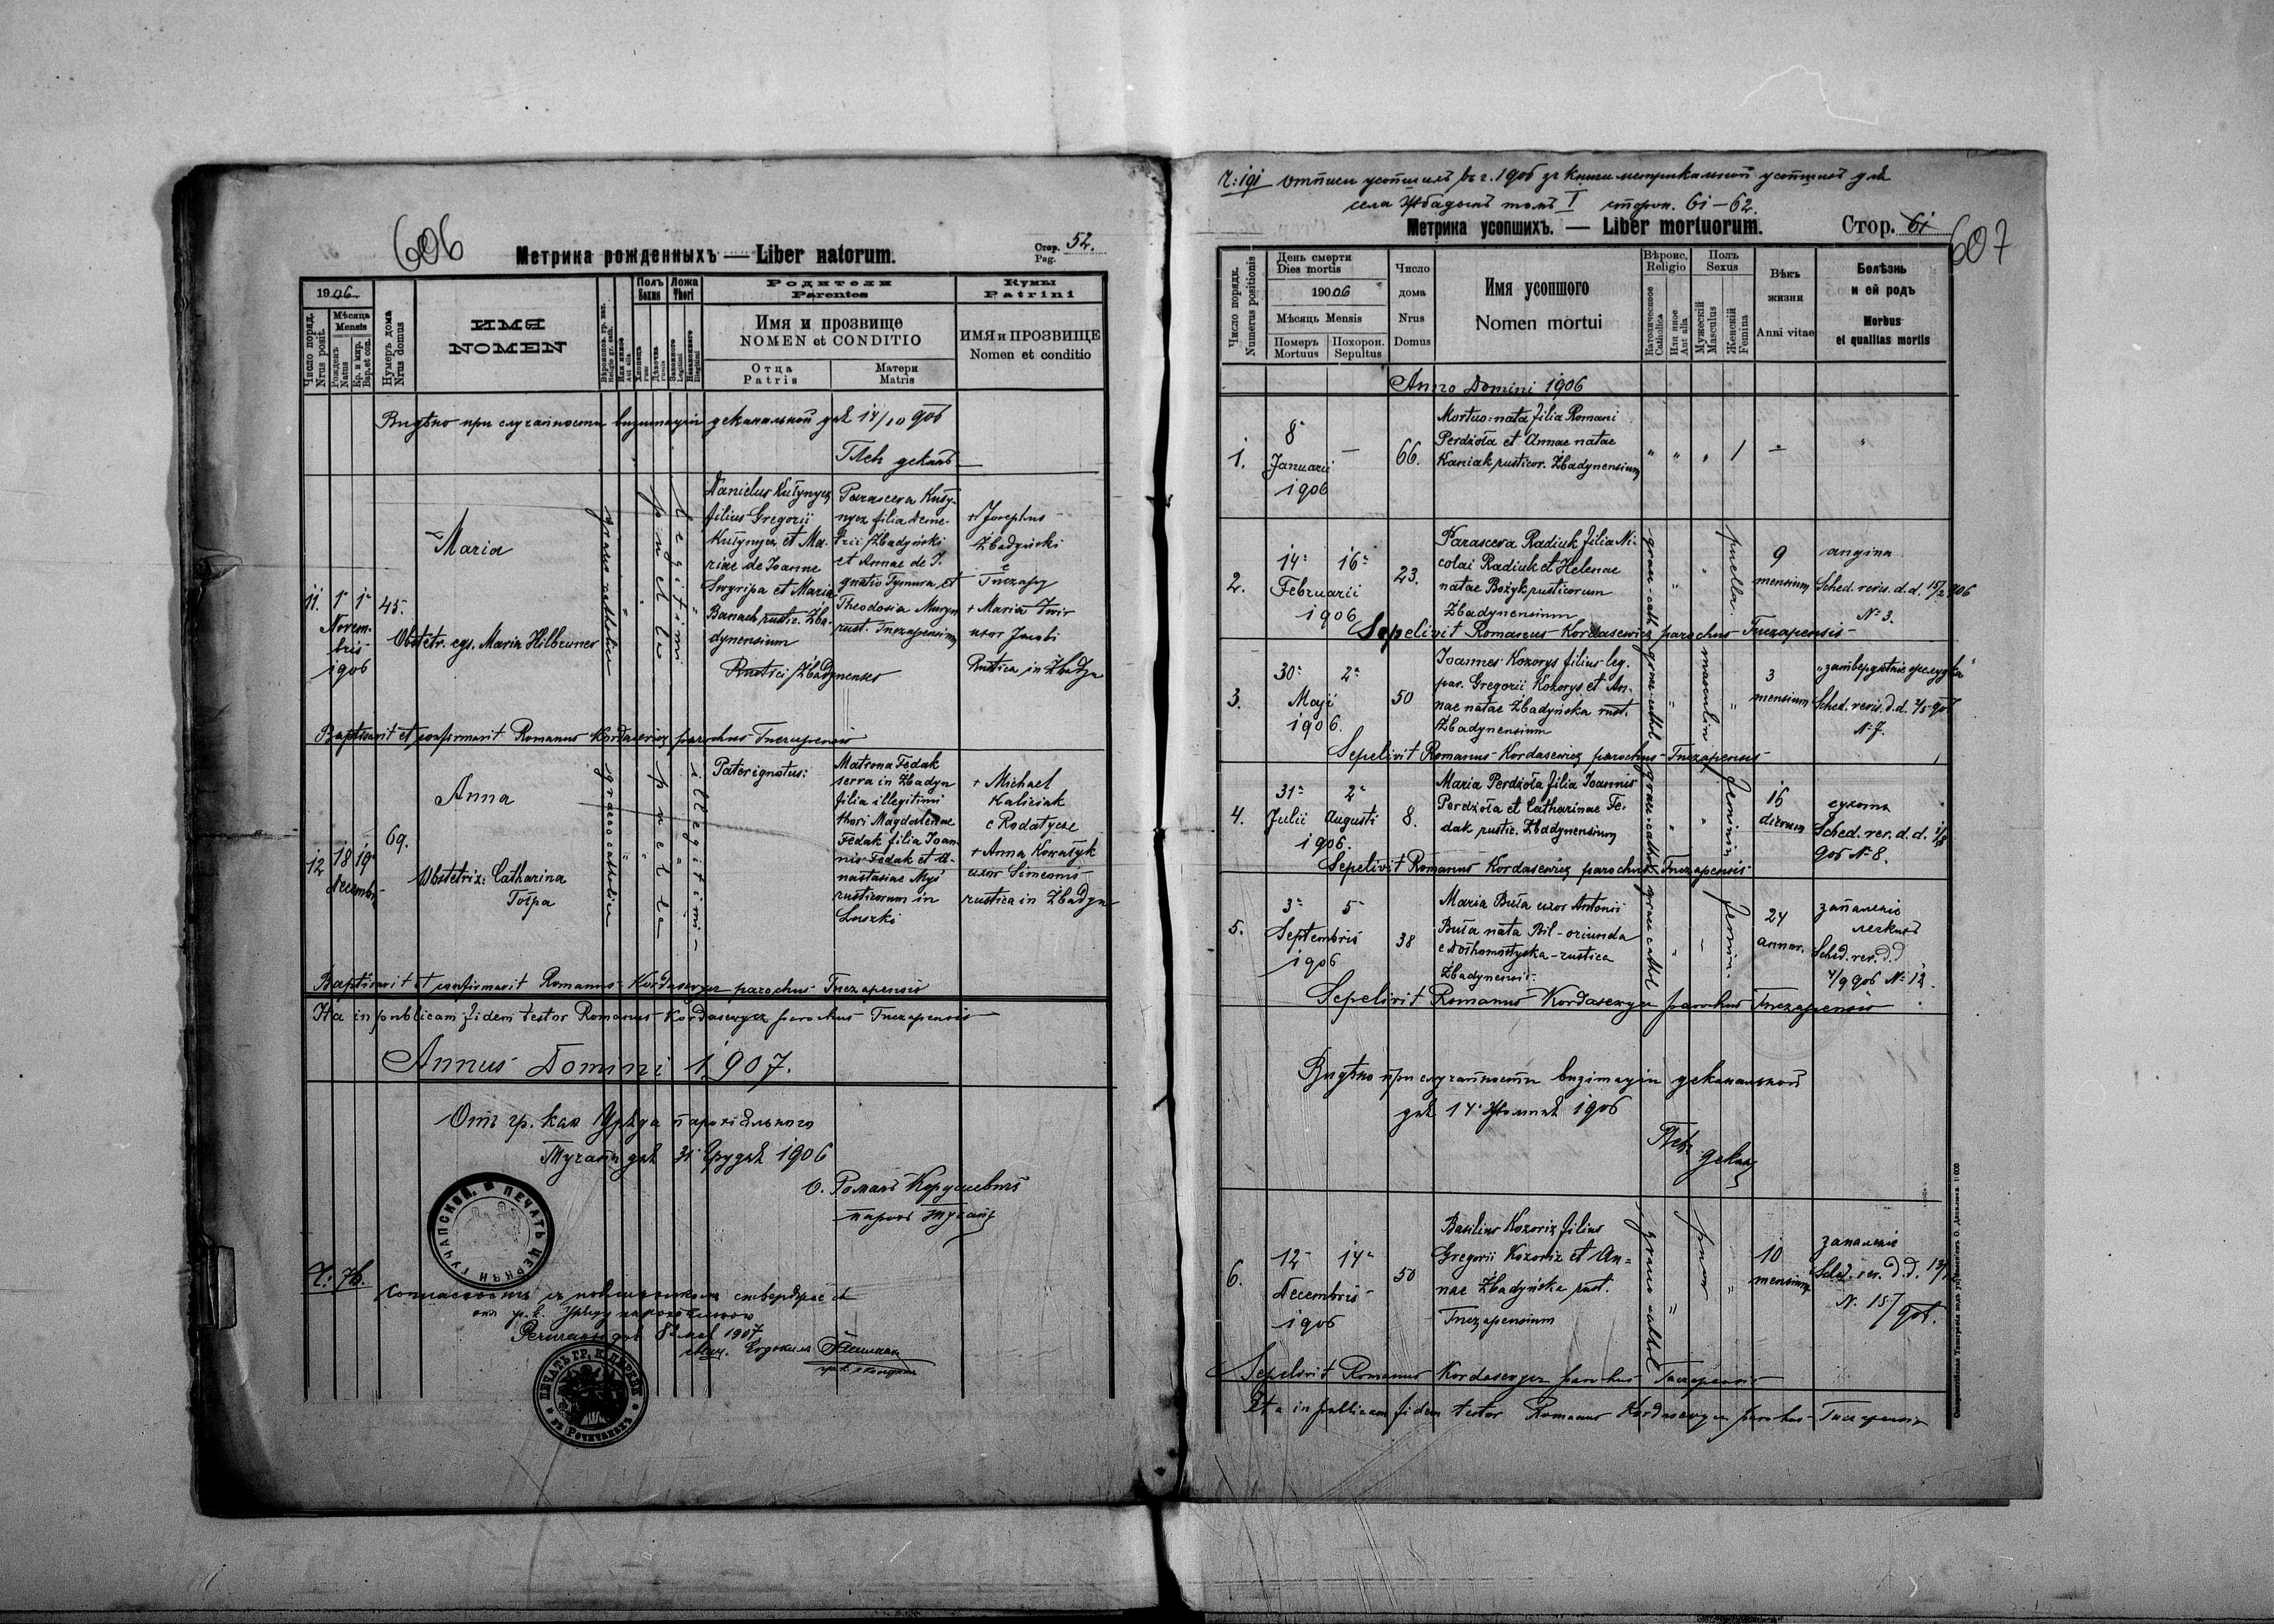 606
Метрика рожденныхъ — Liber natorum.
Стор. 52.
Pag.
1906
Число поряд.
Nrus posit.
Мѣсяца
Mensis
Рожденъ
Natus
Кр. и мир.
Bap. et con.
Нумеръ дома
Nrus domus
ИМЯ
NOMEN
Полъ
Sexus
Ложа
Thori
Родители
Parentes
Имя и прозвище
NOMEN et CONDITIO
Отца
Patris
Матери
Matris
Кумы
Patrini
ИМЯ и ПРОЗВИЩЕ
Nomen et conditio
Видѣно при случайности визитаціи деканальной дня 14/11 906
деканъ
11. 1 1
Novem-
bris
1906
45.
Maria
Obstetr. egs. Maria Hilbruner
graeco catholica
puella
legitimi
Daniclus Kużynycz
filius Gregorii
Kużynycz et Ma-
riae de Joanne
Smyripa et Maria
Banach rustic. Żba-
dynensium
Parasceva Kuży-
nycz filia Deme-
trii Zbadyński
et Annae de I-
gnatio Tymura et
Theodosia Muryn
rust. Tuczapensium
Rustici Zbadynenses
+ Josephus
Zbadyński
e Tuczapy
+ Maria
uxor Jacobi
Rustica in Zbadyn
Baptisavit et confirmavit Romanus Kordasewicz parochus Tuczapensis
12 18 19
Decembris
69.
Anna
Obstetrix: Catharina
Tołpa
graeco catholica
puella
illegitimi
Pater ignotus:
Matrona Fedak
serva in Zbadyn
filia illegitimi
thori Magdalenae
Fedak filia Joan-
nis Fedak et A-
nastasiae Myś
rusticorum in
Luszki
+ Michael
Kaliciak
e Rodatycze
+ Anna Kowałyk
uxor Simeonis
rustica in Zbadyn
Baptisavit et confirmavit Romanus Kordasewycz parochus Tuczapensis
Ita in publicam fidem testor Romanus Kordasewycz parochus Tuczapensis
Annus Domini 1907.
Отъ гр. кат Уряда парохіяльного
Тучапы дня 31 Грудня 1906
о. Романъ Кордасевичъ
парохъ Тучапъ
Ч: 76.
дня 8 мая 1907
ПЕЧАТЬ ЦЕРКВИ ТУЧАПСКОЙ.
ПЕЧАТЬ ГР. К. ЦЕРКВИ ВЪ РОЧИЧАНАХЪ
Ч: 191 Отписи усопшихъ въ г. 1906 зъ книги метрикальной усопшихъ для
села Жбадынъ томъ I сторон. 61–62.
Метрика усопшихъ. — Liber mortuorum.
Стор. 61
607
Число порядк.
Numerus positionis
День смерти
Dies mortis
1906
Мѣсяць Mensis
Померъ
Mortuus
Похорон.
Sepultus
Число
дома
Nrus
Domus
Имя усопшого
Nomen mortui
Вѣроис.
Religio
Католическое
Catholica
Или иное
Aut alia
Полъ
Sexus
Мужескій
Masculus
Женскій
Femina
Вѣкъ
жизни
Anni vitae
Болѣзнь
и ей родъ
Morbus
et qualitas mortis
Anno Domini 1906
1.
8
Januarii
1906
66.
Mortuo-nata filia Romani
Perdzoła et Annae natae
Kaniak rusticor. Zbadynensium
2.
14 16
Februarii
1906
23.
Parasceva Radiuk filia Ni-
colai Radiuk et Helenae
natae Bożyk rusticorum
Zbadynensium
graec-cath
puella
9
mensium
angina
Sched. revis. d.d. 15/2 906
№ 3.
Sepelivit Romanus Kordasewicz parochus Tuczapensis
3.
30 2
Maji
1906.
50
Joannes Kozorys filius leg.
par. Gregorii Kozorys et An-
nae natae Zbadyńska rust.
Zbadynensium
masculin
3
mensium
Sched. revis. d.d.
№ 7.
Sepelivit Romanus Kordasewicz parochus Tuczapensis
4.
31 2
Julii Augusti
1906.
8.
Maria Perdzoła filia Joannis
Perdzoła et Catharinae Fe-
dak rustic. Zbadynensium
16
dierum
сухоты
Sched. rev. d.d. 1/8
906 № 8.
Sepelivit Romanus Kordasewicz parochus Tuczapensis
5.
3 5
Septembris
1906
38
Maria Buła uxor Antonii
Buła nata Bil- oriunda
e Dołhomostyska - rustica
Zbadynensis
24
annor.
запаленіе
легкихъ
Sched. rev. d.d
4/9 906 № 12.
Sepelivit Romanus Kordasewycz parochus Tuczapensis
Видѣно при случайности визитаціи деканальной
дня 14 Жолтня 1906
декан
6.
12 14
Decembris
1906
50
Basilius Kozoriz filius
Gregorii Kozoriz et An-
nae Zbadyńska rust.
Tuczapensium
puer
10
mensium
запаленіе
Sched. rev. d.d. 13/12
№ 15/906.
Sepelivit Romanus Kordasewycz parochus Tuczapensis
Ita in publicam fidem testor Romanus Kordasewycz parochus Tuczapensis